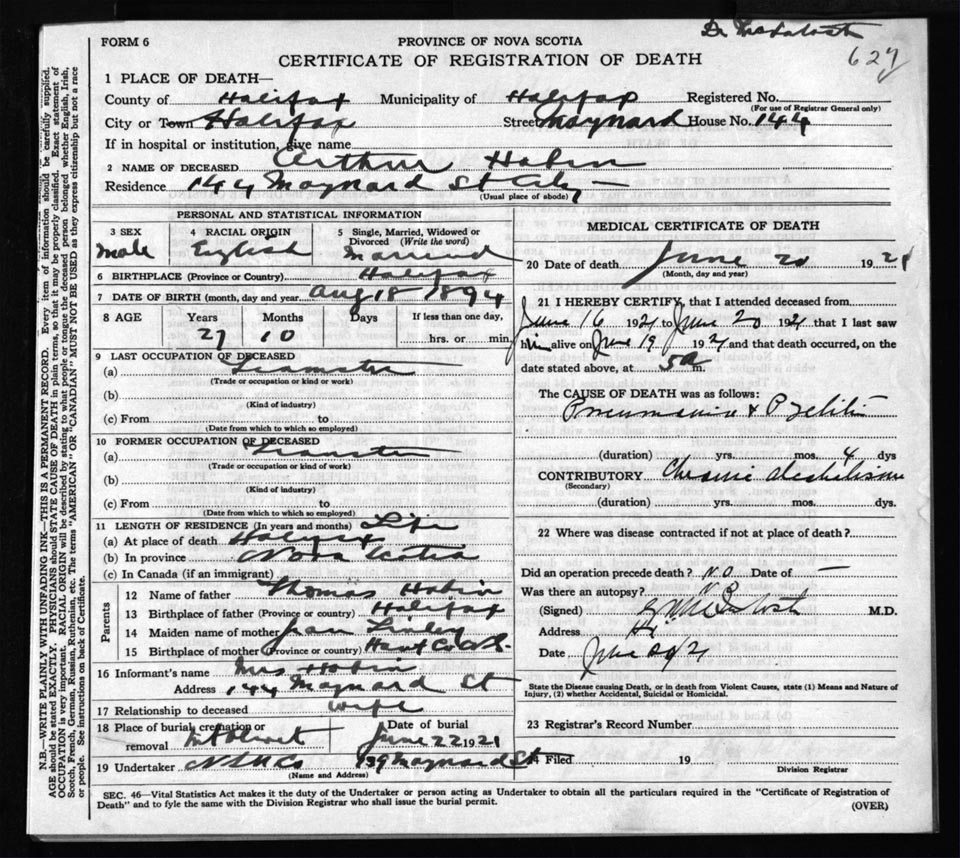 Dr
FORM 6
PROVINCE OF NOVA SCOTIA
627
CERTIFICATE OF REGISTRATION OF DEATH
1 PLACE OF DEATH—
County of Halifax Municipality of Halifax Registered No.
(For use of Registrar General only)
City or Town Halifax Street Maynard House No. 144
If in hospital or institution, give name
2 NAME OF DECEASED Arthur Habin
Residence 144 Maynard St City
(Usual place of abode)
PERSONAL AND STATISTICAL INFORMATION
3 SEX 4 RACIAL ORIGIN 5 Single, Married, Widowed or Divorced (Write the word)
Male English Married
6 BIRTHPLACE (Province or Country) Halifax
7 DATE OF BIRTH (month, day and year) Aug 18 1894
8 AGE Years Months Days If less than one day,
27 10 hrs. or min.
9 LAST OCCUPATION OF DECEASED
(a) Teamster
(Trade or occupation or kind of work)
(b)
(Kind of industry)
(c) From to
(Date from which to which so employed)
10 FORMER OCCUPATION OF DECEASED
(a) Teamster
(Trade or occupation or kind of work)
(b)
(Kind of industry)
(c) From to
(Date from which to which so employed)
11 LENGTH OF RESIDENCE (In years and months) Life
(a) At place of death Halifax
(b) In province Nova Scotia
(c) In Canada (if an immigrant)
Parents
12 Name of father Thomas Habin
13 Birthplace of father (Province or country) Halifax
14 Maiden name of mother Jean
15 Birthplace of mother (Province or country) Hants Co N.S.
16 Informant's name Mrs Habin
Address 144 Maynard St
17 Relationship to deceased Wife
18 Place of burial cremation or removal Mt Olivet Date of burial June 22 1921
19 Undertaker N S U Co 139 Maynard St
(Name and Address)
MEDICAL CERTIFICATE OF DEATH
20 Date of death June 20 1921
(Month, day and year)
21 I HEREBY CERTIFY, that I attended deceased from
June 16 1921 to June 20 1921 that I last saw
him alive on June 19 1921 and that death occurred, on the
date stated above, at 5 a m.
The CAUSE OF DEATH was as follows:
Pneumonia & Pyelitis
(duration) yrs. mos. 4 dys
CONTRIBUTORY Chronic Alcoholism
(Secondary)
(duration) yrs. mos. dys.
22 Where was disease contracted if not at place of death?
Did an operation precede death? NO Date of —
Was there an autopsy? NO
(Signed) M.D.
Address Hx
Date June 20/21
State the Disease causing Death, or in death from Violent Causes, state (1) Means and Nature of
Injury, (2) whether Accidental, Suicidal or Homicidal.
23 Registrar's Record Number
24 Filed 19
Division Registrar
SEC. 46—Vital Statistics Act makes it the duty of the Undertaker or person acting as Undertaker to obtain all the particulars required in the "Certificate of Registration of
Death" and to fyle the same with the Division Registrar who shall issue the burial permit.
(OVER)
N.B.—WRITE PLAINLY WITH UNFADING INK—THIS IS A PERMANENT RECORD. Every item of information should be carefully supplied.
AGE should be stated EXACTLY. PHYSICIANS should STATE CAUSE OF DEATH in plain terms, so that it may be properly classified. Exact statement of
OCCUPATION is very important. RACIAL ORIGIN will be described by stating to what people or tongue the deceased person belonged whether English, Irish,
Scotch, French, German, Russian, Ruthenian, etc. The terms "AMERICAN" OR "CANADIAN" MUST NOT BE USED as they express citizenship but not a race
or people. See instructions on back of Certificate.